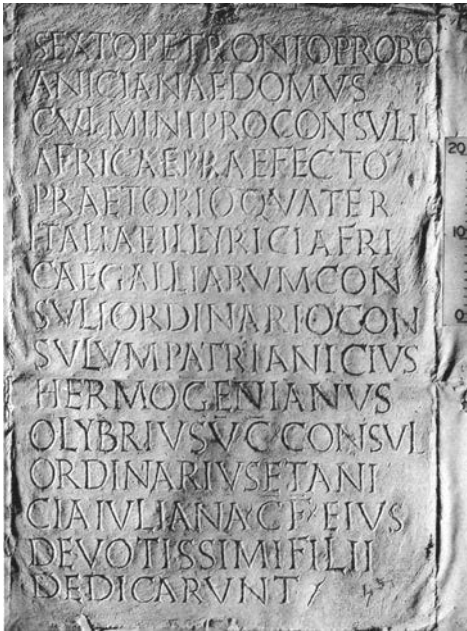 SEXTOPETRONIOPROBO
ANICIANAEDOMVS
CVLMINIPROCONSVLI
AFRICAEPRAEFECTO
PRAETORIOQVATER
ITALIAEILLYRICIAFRI
CAEGALLIARVMCON
SVLIORDINARIOCON
SVLVMPATRIANICIVS
HERMOGENIANVS
OLYBRIVSVCCONSVL
ORDINARIVSETANI
CIAIVLIANACFEIVS
DEVOTISSIMIFILII
DEDICARVNT
20
10
0